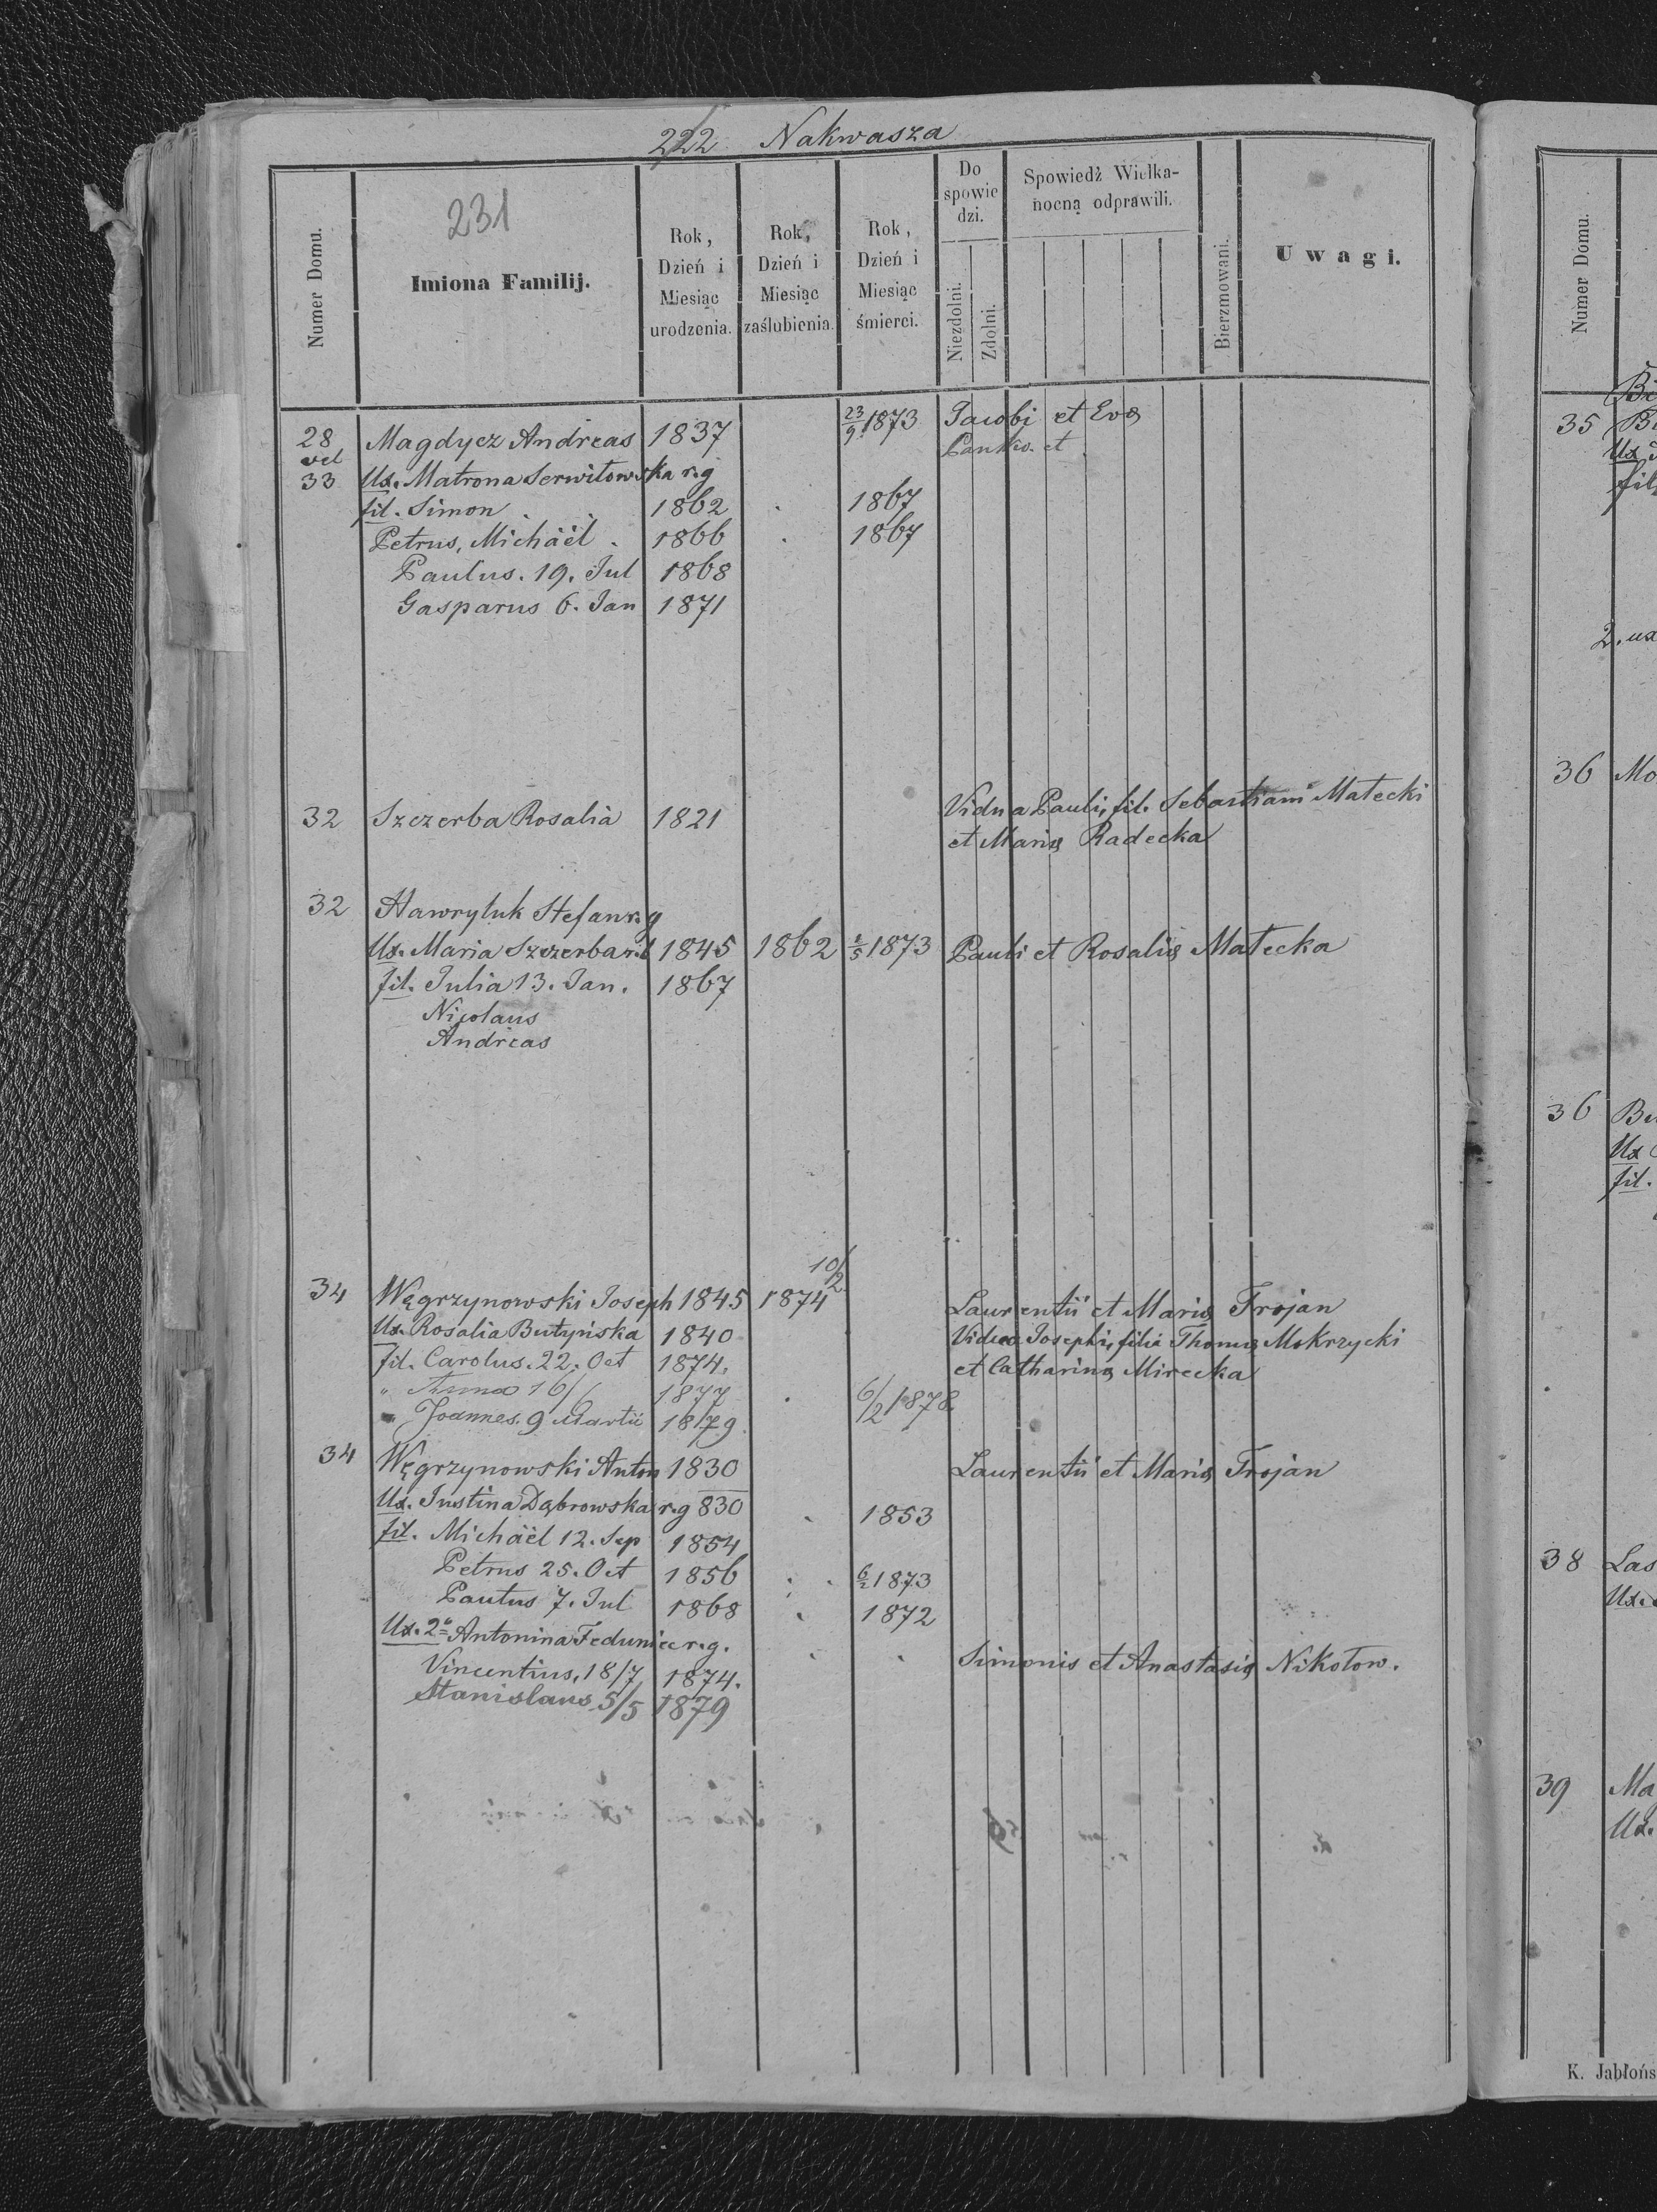 222 Nakwasza
231
Numer Domu.
Imiona Familij.
Rok, Dzień i Miesiąc urodzenia.
Rok, Dzień i Miesiąc zaślubienia.
Rok, Dzień i Miesiąc śmierci.
Do spowiedzi.
Niezdolni.
Zdolni.
Spowiedź Wielkanocną odprawili.
Bierzmowani.
Uwagi.
28 Magdycz Andreas 1837 23/9 1873 Jacobi et Evæ
vel Pankiw. et
33 Ux. Matrona Serwitowska r.g
fil. Simon 1862 1867
Petrus, Michäel 1866 1867
Paulus. 19. Jul 1868
Gasparus 6. Jan 1871
32 Szczerba Rosalia 1821 Vidua Pauli, fil. Sebastiani Małecki
et Mariæ Radecka
32 Hawryluk Stefan r.g
Ux. Maria Szczerba r.l 1845 1862 1/5 1873 Pauli et Rosaliæ Małecka
fil. Julia 13. Jan. 1867
Nicolaus
Andreas
10/2
34 Węgrzynowski Joseph 1845 1874 Laurentii et Mariæ Trojan
Ux. Rosalia Butyńska 1840 Vidua Josephi, filia Thomæ Mokrzycki
fil. Carolus. 22. Oct 1874. et Catharinæ Mirecka
" Anna 16/6 1877 6/2 1878.
" Joannes. 9 Martii 1879
34 Węgrzynowski Anton 1830 Laurentii et Mariæ Trojan
Ux. Justina Dąbrowska r.g 830 1853
fil. Michäel 12. Sep 1854
Petrus 25. Oct 1856 6/2 1873
Paulus 7. Jul 1868 1872
Ux. 2a Antonina Feduniec r.g.
Simonis et Anastasiæ Nikołow.
Vincentius, 18/7 1874.
Stanislaus 5/5 1879
Numer Domu.
35
Ux
fil
2. ux
36 Mo
36 Bu
Ux
fil.
38 Las
Ux.
39 Ma
Ux.
K. Jabłońs